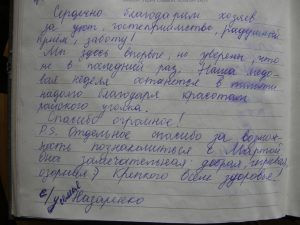 Сердечно благодарим хозяев
за уют, гостеприимство, радушный
приём, заботу!
Мы здесь впервые, но уверены, что
не в последний раз. Наша медо-
вая неделя останется в памяти
надолго благодаря красотам
райского уголка.
Спасибо огромное!
P.S. Отдельное спасибо за возмож-
ность познакомиться с Мартой
она замечательная: добрая, игривая,
озорная) Крепкого всем здоровья!
с/ уваж.
Назаренко